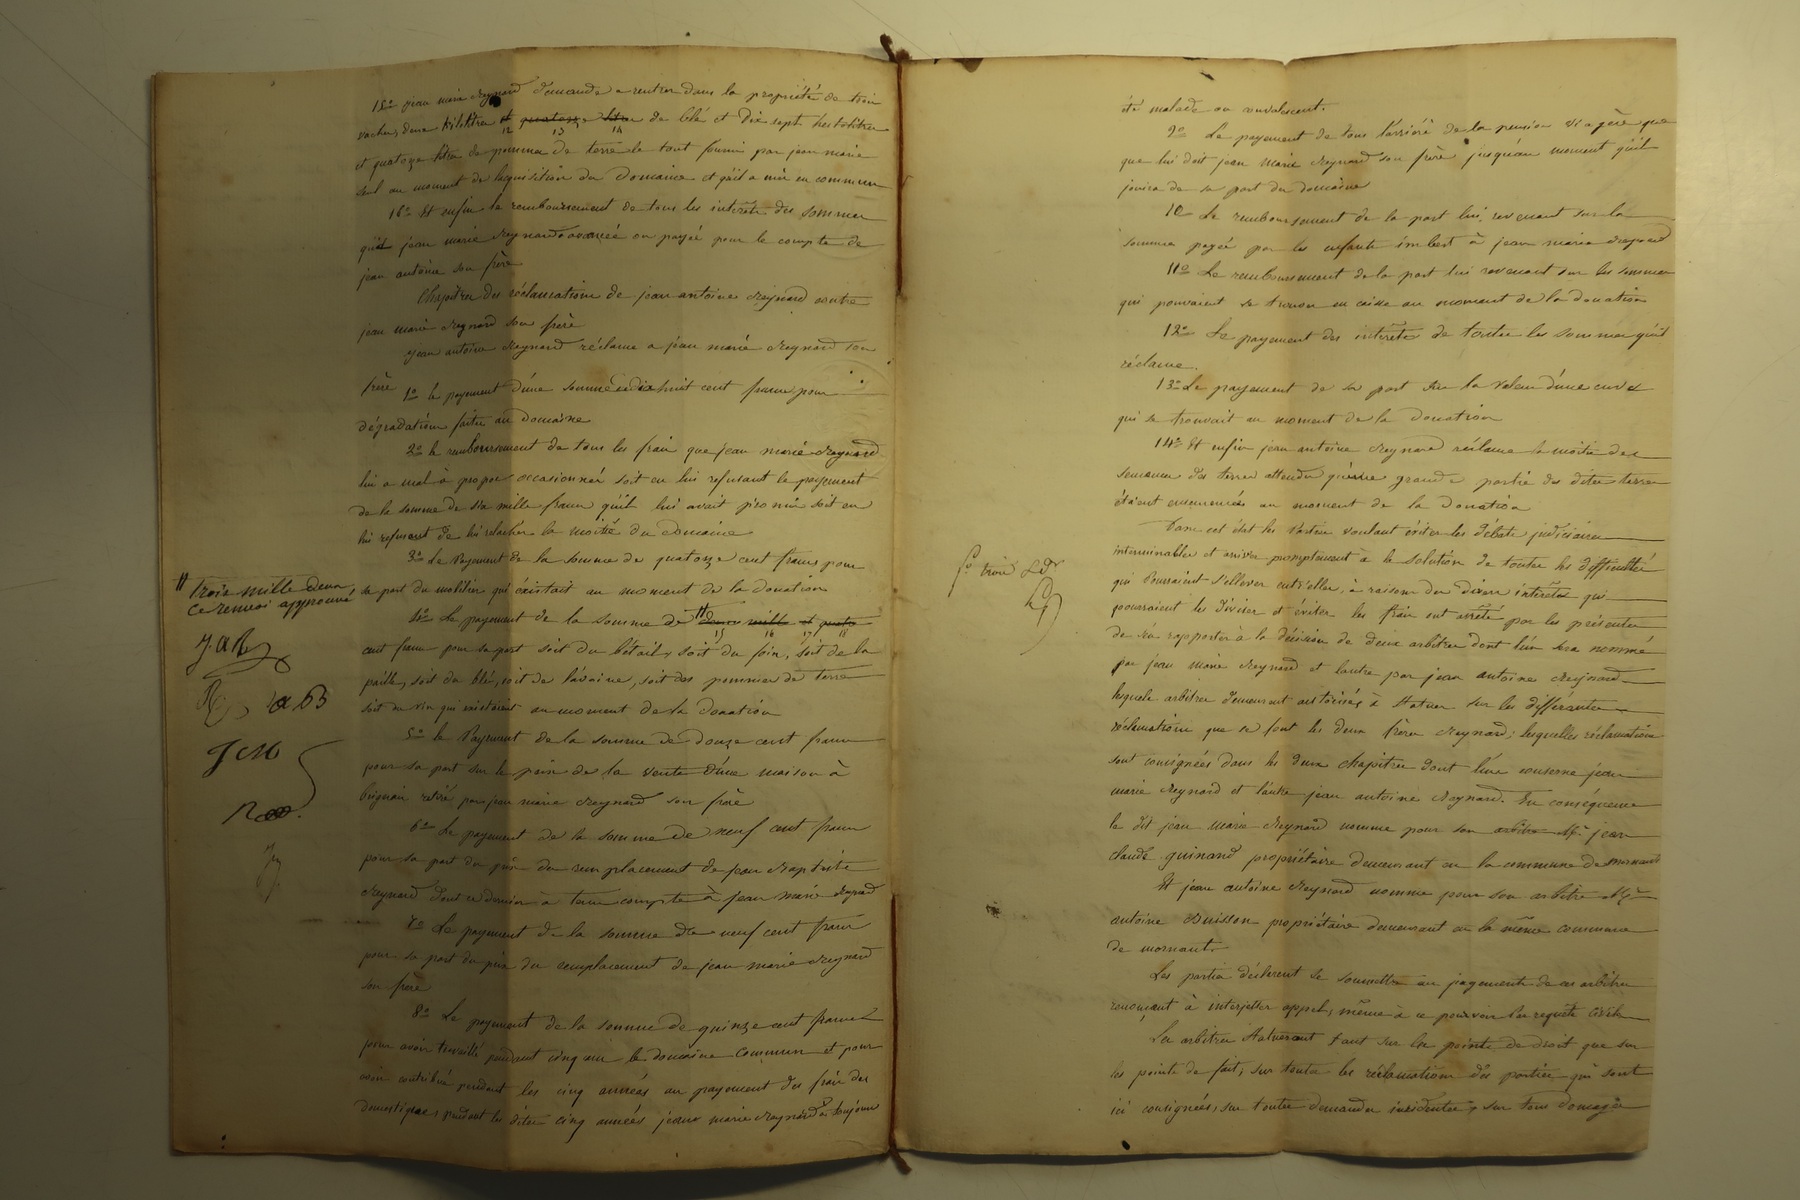 15o jean marie Reynard demande a rentrer dans la propriété de trois
vaches, deux kilolitre et quatorze litre de blé et dix sept hectolitre
12 13 14
et quatoze litre de pomme de terre le tout fourni par jean marie
seul au moment de l'aquisition du Domaine et quil a mis en commun
16o Et enfin le remboursement de tous les interêts des sommes
quil jean marie Reynard a avancée ou payée pour le compte de
jean antoine son frère
Chapitre des réclamations de jean antoine Reynard contre
jean marie Reynard son frère
jean antoine Reynard réclame a jean marie Reynard son
frère 1o le payement d'une somme de dix huit cent francs pour
dégradations faites au domaine
2o le remboursement de tous les frais que jean marie Reynard
lui a mal à propos occasionnés soit en lui refusant le payement
de la somme de six mille francs qu'il lui avait promis soit en
lui refusant de lui relacher la moitié du domaine
3o Le Payement de la somme de quatorze cent francs pour
sa part du mobilier qui éxistait au moment de la donation
4o Le payement de la somme de # deux mille et quatre
15 16 17 18
cent francs pour sa part soit du bétail, soit du foin, soit de la
paille, soit du blé, soit de l'avoine, soit des pommes de terre
soit du vin qui existaient au moment de la donation
5o le Payement de la somme de douze cent francs
pour sa part sur le prix de la vente d'une maison à
retiré par jean marie Reynard son frère
6o Le payement de la somme de neuf cent francs
pour sa part du prix du remplacement de jean Baptiste
Reynard dont ce dernier à tenu compte à jean marie Reynard
7o Le payement de la somme de neuf cent francs
pour sa part du prix du remplacement de jean marie Reynard
son frère
8o Le payement de la somme de quinze cent francs
pour avoir travaillé pendant cinq ans le domaine commun et pour
avoir contribué pendant les cinq années au payement des frais des
domestiques, pendant les dites cinq années jean marie Reynard a toujours
# trois mille deux
ce renvoi approuvé
J.A.R
JCM
été malade ou convalescent.
9o Le payement de tous l'arriéré de la pension viagère que
que lui doit jean marie Reynard son frère jusqu'au moment qu'il
jouira de sa part du domaine
10 Le remboursement de la part lui revenant sur la
somme payée par les enfants imbert à jean marie Reynard
11o Le remboursement de la part lui revenant sur les sommes
qui pouvaient se trouver en caisse au moment de la donation
12o Le payement des interêts de toutes les sommes qu'il
réclame.
13o Le payement de sa part sur la valeur d'une cuve
qui se trouvait au moment de la donation
14o Et enfin jean antoine Reynard réclame la moitié des
semences des terres attendu qu'une grande partie des dites terres
étaient ensemencées au moment de la donation
Dans cet état les Parties voulant éviter les débats judiciaires
interminables et arriver promptement à la solution de toutes les difficultés
qui Pourraient s'ellever entr'elles, à raison des divers intérêts qui
pourraient les diviser et éviter les frais ont arrêté par les présentes
de s'en rapporter à la décision de deux arbitres dont l'un sera nommé
par jean marie Reynard et l'autre par jean antoine Reynard
lesquels arbitres demeurent autorisés à statuer sur les différentes
réclamations que se font les deux frères Reynard; lesquelles réclamations
sont consignées dans les deux chapitres dont l'un concerne jean
marie Reynard et l'autre jean antoine Reynard. En conséquence
le dit jean marie Reynard nomme pour son arbitre Mr jean
claude guinand propriétaire demeurant en la commune de mornant
Et jean antoine Reynard nomme pour son arbitre Mr
antoine Buisson propriétaire demeurant en la même commune
de mornant.
Les parties déclarent se soumettre au jugement de ces arbitres
renonçant à interjetter appel, même à ce pourvoir en requête civile
Les arbitres statueront tant sur les points de droit que sur
les points de fait, sur toutes les réclamations des parties qui sont
ici consignées, sur toutes demandes incidentes, sur tous domages